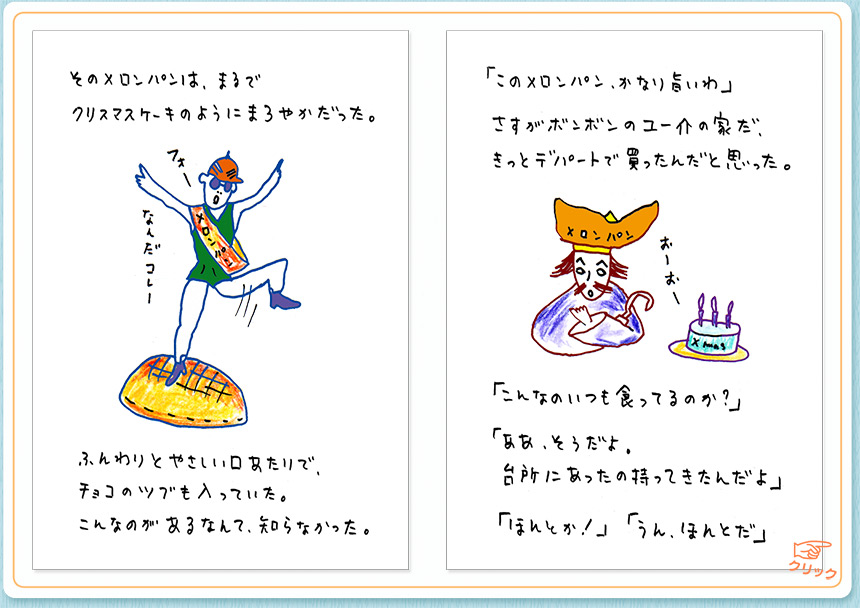 そのメロンパンは、まるで
クリスマスケーキのようにまろやかだった。
フォー
メロンパン
なんだコレー
ふんわりとやさしい口あたりで、
チョコのツブも入っていた。
こんなのがあるなんて、知らなかった。
「このメロンパン、かなり旨いわ」
さすがボンボンのユー介の家だ、
きっとデパートで買ったんだと思った。
メロンパン
おーおー
Xmas
「こんなのいつも食ってるのか？」
「ああ、そうだよ。
台所にあったの持ってきたんだよ」
「ほんとか！」「うん、ほんとだ」
クリック